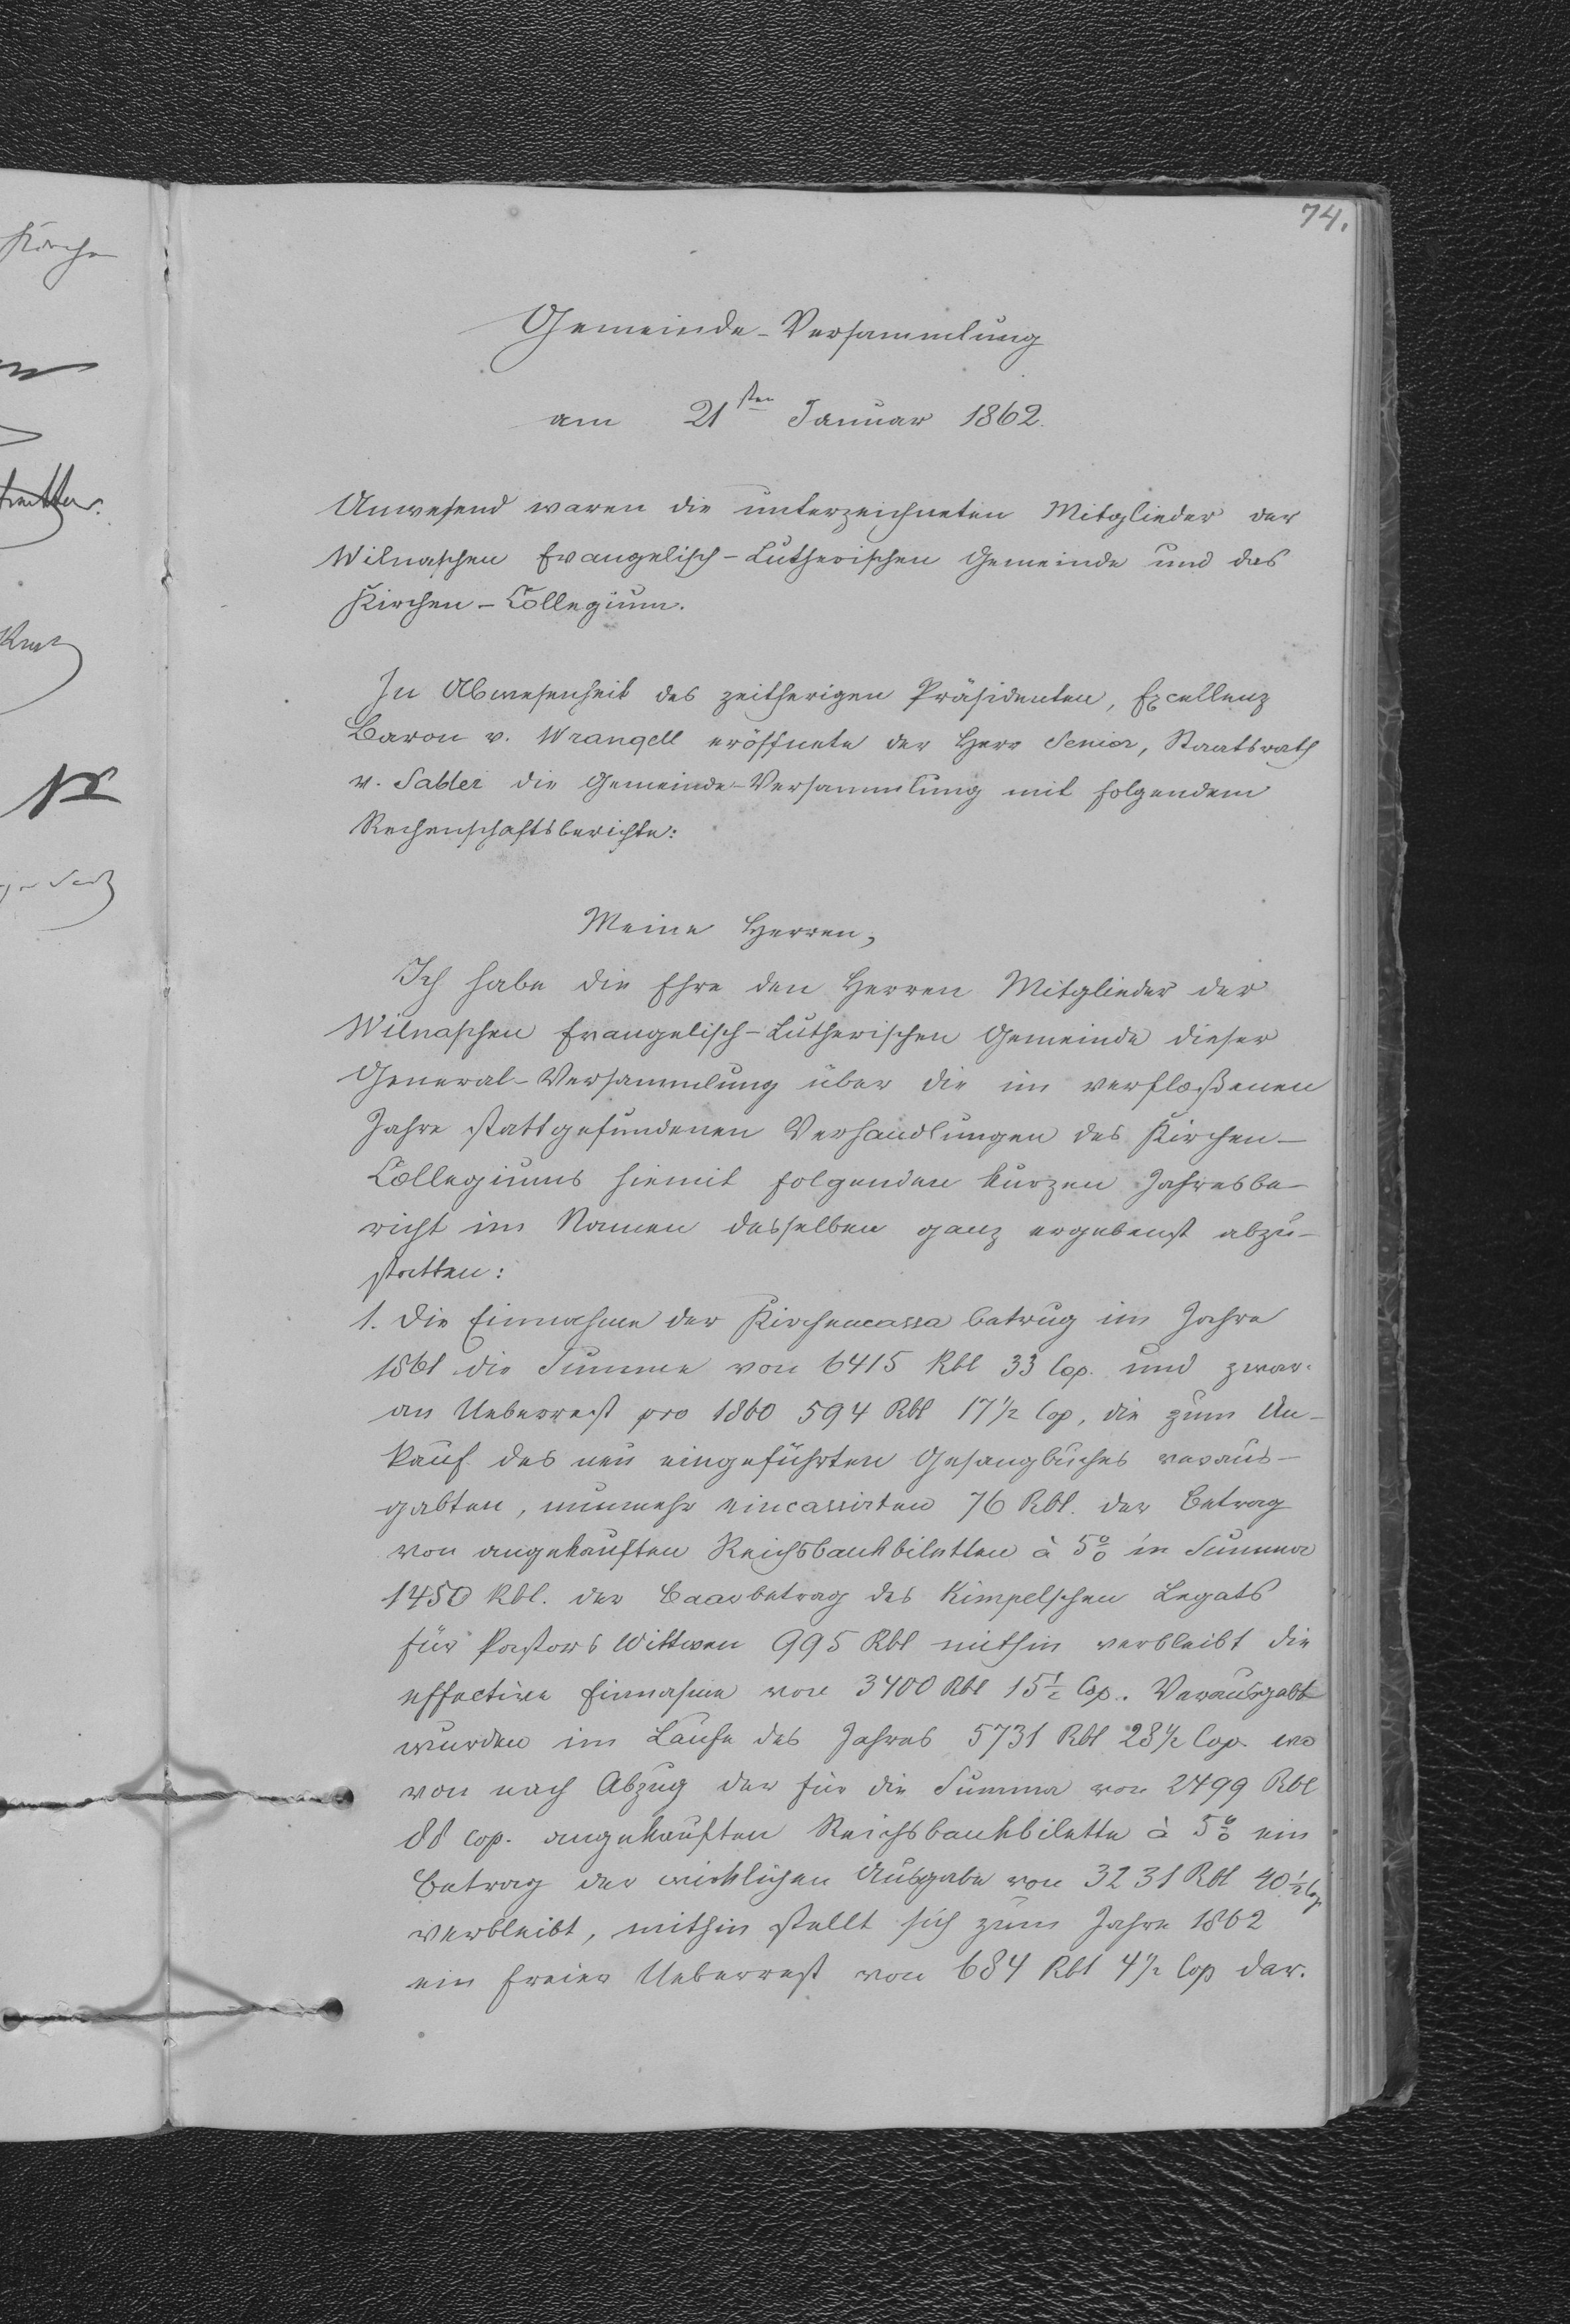 74.
Gemeinde-Versammlung
am 21sten Januar 1862.
Anwesend waren die unterzeichneten Mitglieder der
Wilnaschen Evangelisch-Lutherischen Gemeinde und das
Kirchen-Collegium.
In Abwesenheit des zeitherigen Präsidenten, Excellenz
Baron v. Wrangell eröffnete der Herr Senior, Staatsrath
v. Sabler die Gemeinde-Versammlung mit folgendem
Rechenschaftsberichte:
Meine Herren,
Ich habe die Ehre den Herren Mitglieder der
Wilnaschen Evangelisch-Lutherischen Gemeinde dieser
General-Versammlung über die im verfloßenen
Jahre stattgefundenen Verhandlungen des Kirchen-
Collegiums hiemit folgenden kurzen Jahresbe-
richt im Namen desselben ganz ergebenst abzu-
statten:
1. Die Einnahme der Kirchencassa betrug im Jahre
1861 die Summe von 6415 Rbl 33 Cop. und zwar
an Ueberrest pro 1860 594 Rbl 17 1/2 Cop, die zum An-
kauf des neu eingeführten Gesangbuches veraus-
gabten, nunmehr eincassirten 76 Rbl. der Betrag
von angekauften Reichsbankbiletten à 5% in Summa
1450 Rbl. der Baarbetrag des Kimpelschen Legats
für Pastors Wittwen 995 Rbl mithin verbleibt die
effective Einnahme von 3400 Rbl 15 1/2 Cop. Verausgabt
wurden im Laufe des Jahres 5731 Rbl 28 1/2 Cop. wo
von nach Abzug der für die Summa von 2499 Rbl
88 Cop. angekauften Reichsbankbilette à 5% ein
Betrag der wirklichen Ausgabe von 3231 Rbl 40 1/2 Cop
verbleibt, mithin stellt sich zum Jahre 1862
ein freier Ueberrest von 684 Rbl 4 1/2 Cop dar.